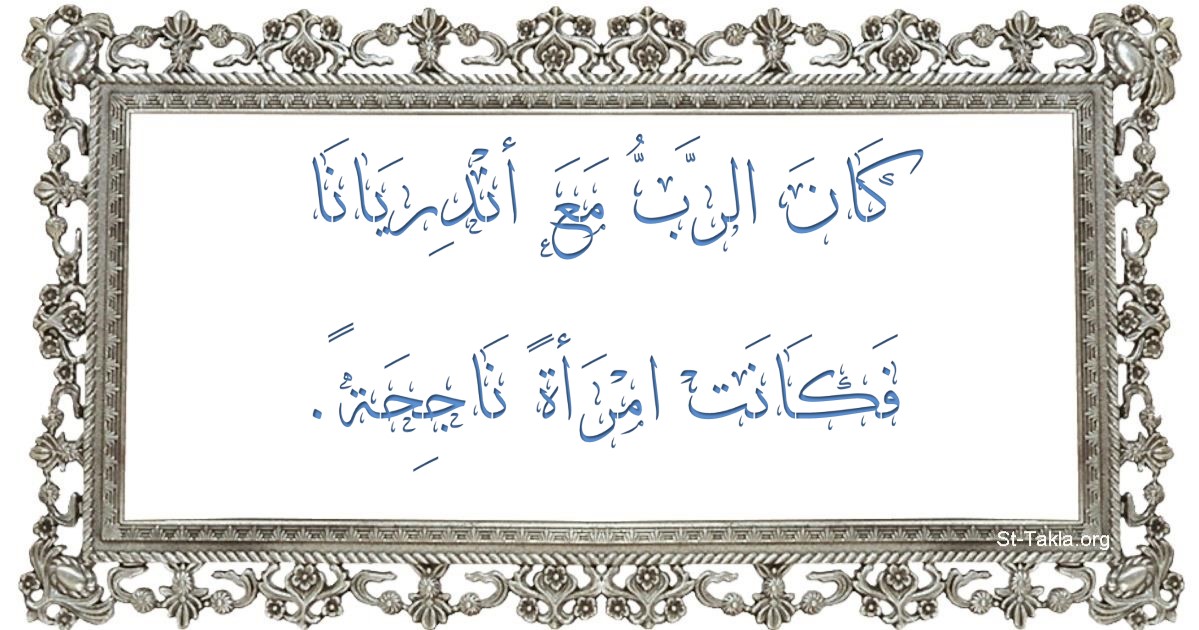 كَانَ الرَّبُّ مَعَ أنْدِرِيَانَا
فَكَانَتْ امْرَأةً نَاجِحَةً.
St-Takla.org